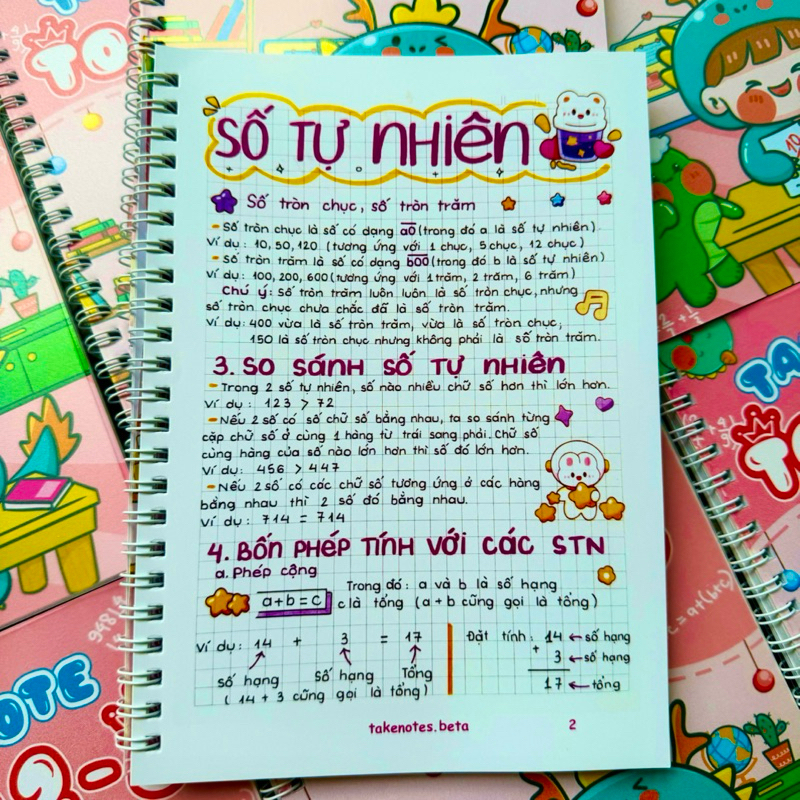 SỐ TỰ NHIÊN
Số tròn chục, số tròn trăm
- Số tròn chục là số có dạng a0 (trong đó a là số tự nhiên).
Ví dụ: 10, 50, 120 (tương ứng với 1 chục, 5 chục, 12 chục)
- Số tròn trăm là số có dạng b00 (trong đó b là số tự nhiên)
Ví dụ: 100, 200, 600 (tương ứng với 1 trăm, 2 trăm, 6 trăm)
Chú ý: Số tròn trăm luôn luôn là số tròn chục, nhưng
số tròn chục chưa chắc đã là số tròn trăm.
Ví dụ: 400 vừa là số tròn trăm, vừa là số tròn chục;
150 là số tròn chục nhưng không phải là số tròn trăm.
3. SO SÁNH SỐ TỰ NHIÊN
- Trong 2 số tự nhiên, số nào nhiều chữ số hơn thì lớn hơn.
Ví dụ: 123 > 72
- Nếu 2 số có số chữ số bằng nhau, ta so sánh từng
cặp chữ số ở cùng 1 hàng từ trái sang phải. Chữ số
cùng hàng của số nào lớn hơn thì số đó lớn hơn.
Ví dụ: 456 > 447
- Nếu 2 số có các chữ số tương ứng ở các hàng
bằng nhau thì 2 số đó bằng nhau.
Ví dụ: 714 = 714
4. BỐN PHÉP TÍNH VỚI CÁC STN
a. Phép cộng
a+b=c
Trong đó: a và b là số hạng
c là tổng (a+b cũng gọi là tổng)
Ví dụ: 14 + 3 = 17
số hạng số hạng Tổng
(14 + 3 cũng gọi là tổng)
Đặt tính: 14 ← số hạng
+ 3 ← số hạng
17 ← tổng
takenotes.beta 2